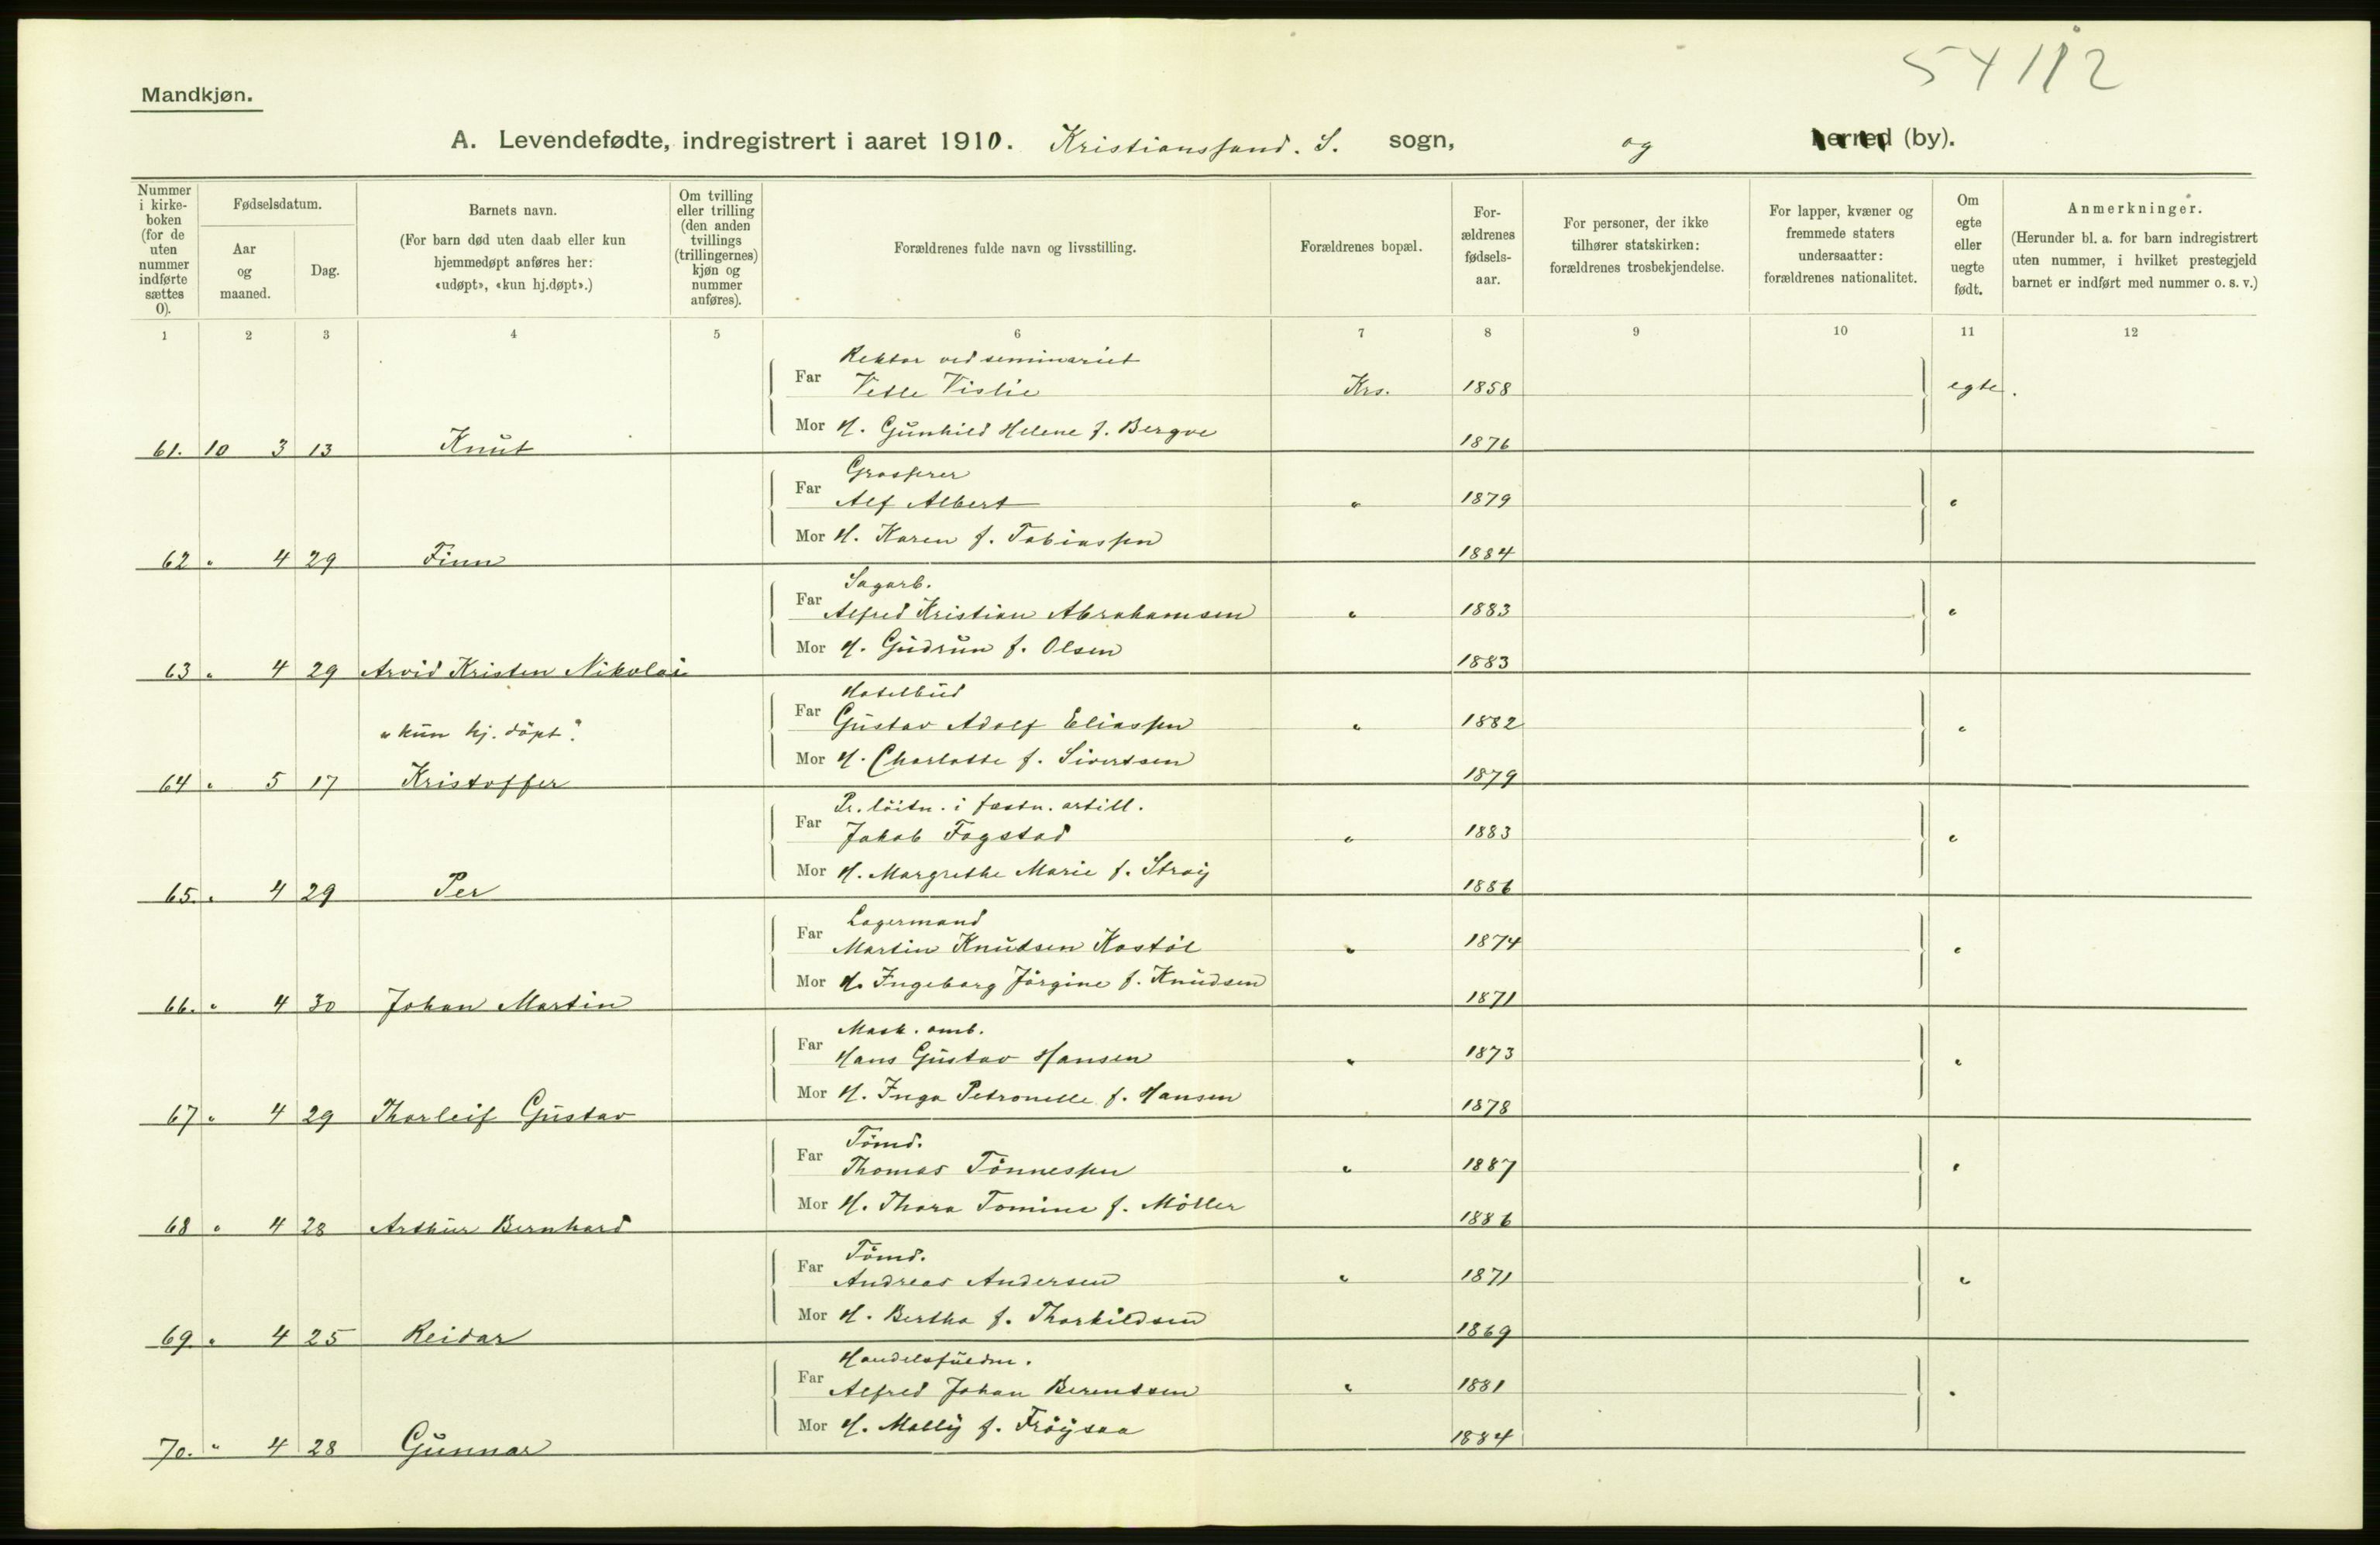 54112
Mandkjøn.
A. Levendefødte, indregistrert i aaret 1910. Kristianssand. S. sogn, og herred (by).
Nummer i kirke-boken (for de uten nummer indførte sættes 0).
Fødselsdatum.
Aar og maaned.
Dag.
Barnets navn.
(For barn død uten daab eller kun hjemmedøpt anføres her: «udøpt», «kun hj.døpt».)
Om tvilling eller trilling (den anden tvillings (trillingernes) kjøn og nummer anføres).
Forældrenes fulde navn og livsstilling.
Forældrenes bopæl.
For-ældrenes fødsels-aar.
For personer, der ikke tilhører statskirken: forældrenes trosbekjendelse.
For lapper, kvæner og fremmede staters undersaatter: forældrenes nationalitet.
Om egte eller uegte født.
Anmerkninger.
(Herunder bl. a. for barn indregistrert uten nummer, i hvilket prestegjeld barnet er indført med nummer o. s. v.)
1 2 3 4 5 6 7 8 9 10 11 12
Rektor ved seminariet
Far Vetle Vislie Krs. 1858 egte.
Mor H. Gunhild Helene f. Bergve 1876
61. 10 3 13 Knut
Grosserer
Far Alf Albert " 1879 "
Mor H. Karen f. Tobiassen 1884
62 " 4 29 Finn
Sagarb.
Far Alfred Kristian Abrahamsen " 1883 "
Mor H. Gudrun f. Olsen 1883
63 " 4 29 Arvid Kristen Nikolai
Hotelbud
Far Gustav Adolf Eliassen " 1882 "
"kun hj. döpt".
Mor H. Charlotte f. Sivertsen 1879
64 " 5 17 Kristoffer
Pr. löitn. i fæstn. artill.
Far Jakob Fogstad " 1883 "
Mor H. Margrethe Marie f. Stray 1886
65. " 4 29 Per
Lagermand
Far Martin Knudsen Kostöl " 1874 "
Mor H. Ingeborg Jörgine f. Knudsen 1871
66. " 4 30 Johan Martin
Mask. omb.
Far Hans Gustav Hansen " 1873 "
Mor H. Inga Petronelle f. Hansen 1878
67 " 4 29 Thorleif Gustav
Tömd.
Far Thomas Tönnessen " 1887 "
Mor H. Thora Tomine f. Möller 1886
68 " 4 28 Arthur Bernhard
Tömd.
Far Andreas Andersen " 1871 "
Mor H. Bertha f. Thorkildsen 1869
69. " 4 25 Reidar
Handelsfuldm.
Far Alfred Johan Berentsen " 1881 "
Mor H. Molly f. Fröysaa 1884
70. " 4 28 Gunnar